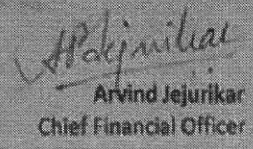 Arvind Jejurikar
Chief Financial Officer